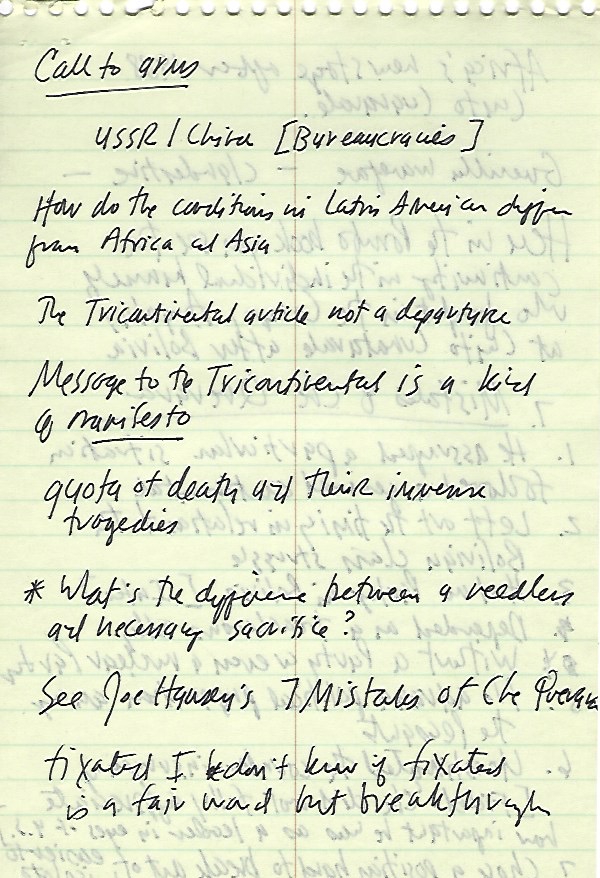 Call to arms
USSR / China [Bureaucracies]
How do the conditions in Latin American differ
from Africa ad Asia
The Tricontinental article not a departure
Message to the Tricontinental is a kind
of manifesto
quota of death and their immense
tragedies
* What's the difference between a needless
and necessary sacrifice?
See Joe Hansen's 7 Mistakes of Che Guevara
fixated I don't know if fixated
is a fair word but breakthrough